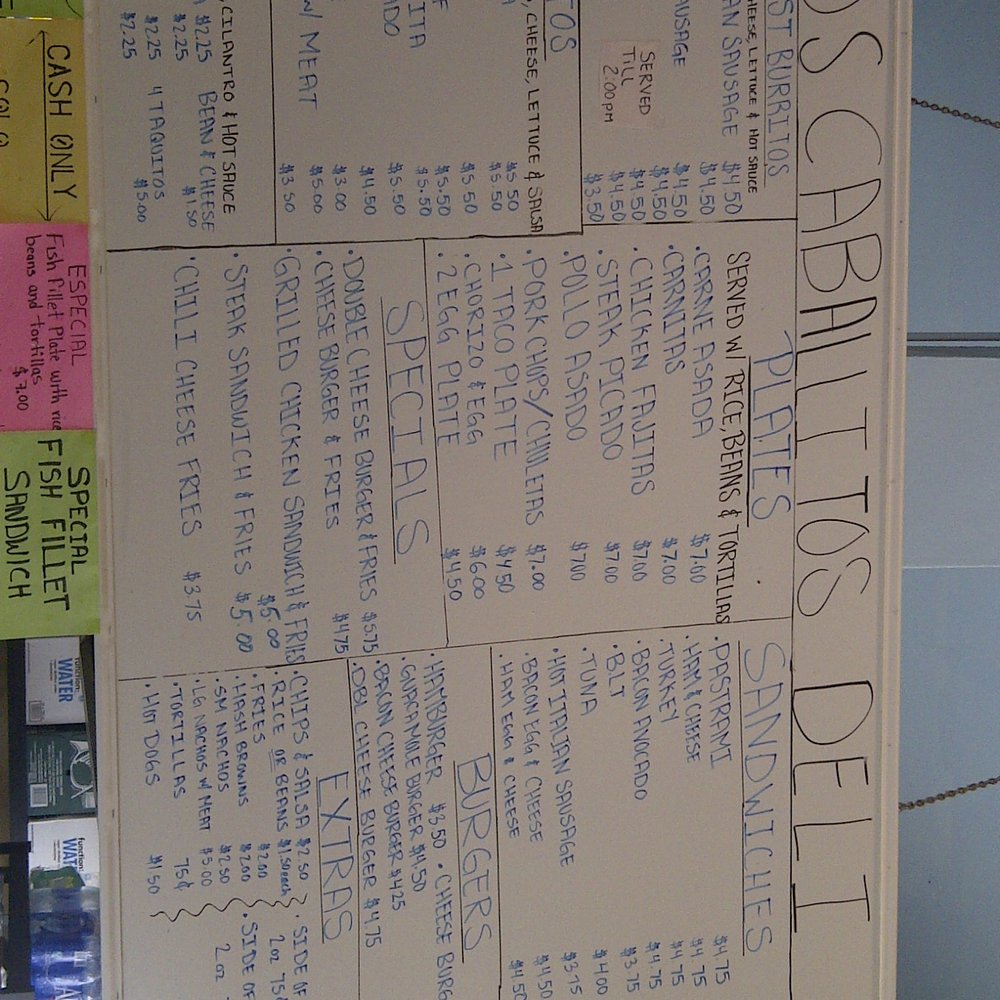 OS CABALITOS DELI
ST BURRITOS
HEESE, LETTUCE & HOT SAUCE
AN SAUSAGE $4.50
$4.50
AUSAGE $4.50
$4.50
$4.50
$3.50
SERVED
TILL
2:00PM
TOS
, CHEESE, LETTUCE & SALSA
$5.50
$5.50
$5.50
$5.50
ITA $5.50
ADO $4.50
$3.00
$5.00
W/ MEAT $3.50
, CILANTRO & HOT SAUCE
$2.25 BEAN & CHEESE $1.50
$2.25
$2.25 4 TAQUITOS $5.00
$2.25
PLATES
SERVED W/ RICE, BEANS & TORTILLAS
• CARNE ASADA $7.00
• CARNITAS $7.00
• CHICKEN FAJITAS $7.00
• STEAK PICADO $7.00
• POLLO ASADO $7.00
• PORK CHOPS/CHULETAS $7.00
• 1 TACO PLATE $4.50
• CHORIZO & EGG $6.00
• 2 EGG PLATE $4.50
SPECIALS
• DOUBLE CHEESE BURGER & FRIES $5.75
• CHEESE BURGER & FRIES $4.75
• GRILLED CHICKEN SANDWICH & FRIES $5.00
• STEAK SANDWICH & FRIES $5.00
• CHILI CHEESE FRIES $3.75
SANDWICHES
• PASTRAMI $4.75
• HAM & CHEESE $4.75
• TURKEY $4.75
• BACON AVOCADO $4.75
• BLT $3.75
• TUNA $4.00
• HOT ITALIAN SAUSAGE $3.75
• BACON EGG & CHEESE $4.50
• HAM EGG & CHEESE $4.50
BURGERS
• HAMBURGER $3.50 • CHEESE BURG
• GUACAMOLE BURGER $4.50
• BACON CHEESE BURGER $4.25
• DBL CHEESE BURGER $4.75
EXTRAS
• CHIPS & SALSA $2.50
• RICE OR BEANS $1.50 each
• FRIES $2.00
• HASH BROWNS $2.00
• SM NACHOS $2.50
• LG NACHOS W/ MEAT $5.00
• TORTILLAS 75¢
• HOT DOGS $1.50
• SIDE OF
2 oz 75¢
• SIDE OF
2 oz
CASH ONLY
ESPECIAL
Fish Fillet Plate with rice
beans and tortillas
$7.00
SPECIAL
FISH FILLET
SANDWICH
function:
WATER
function
WAT